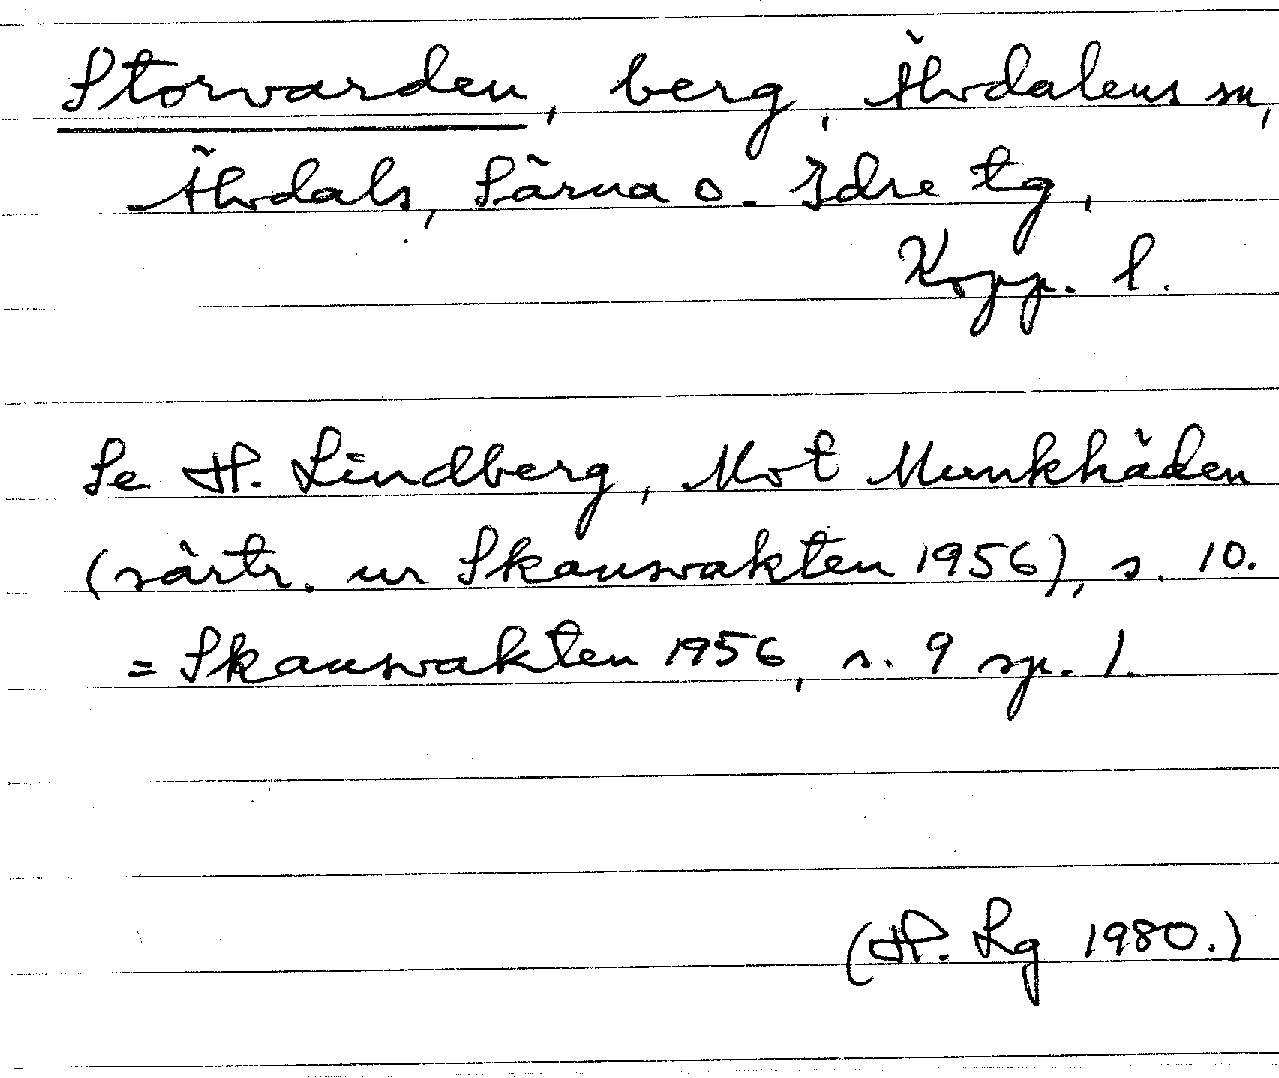 Storvarden, berg, Älvdalens sn,
Älvdals, Särna o. Idre tg,
Kopp. l.
Se H. Lindberg, Mot Munkhäden
(särtr. ur Skansvakten 1956), s. 10.
= Skansvakten 1956, s. 9 sp. 1.
(H. Lg 1980.)